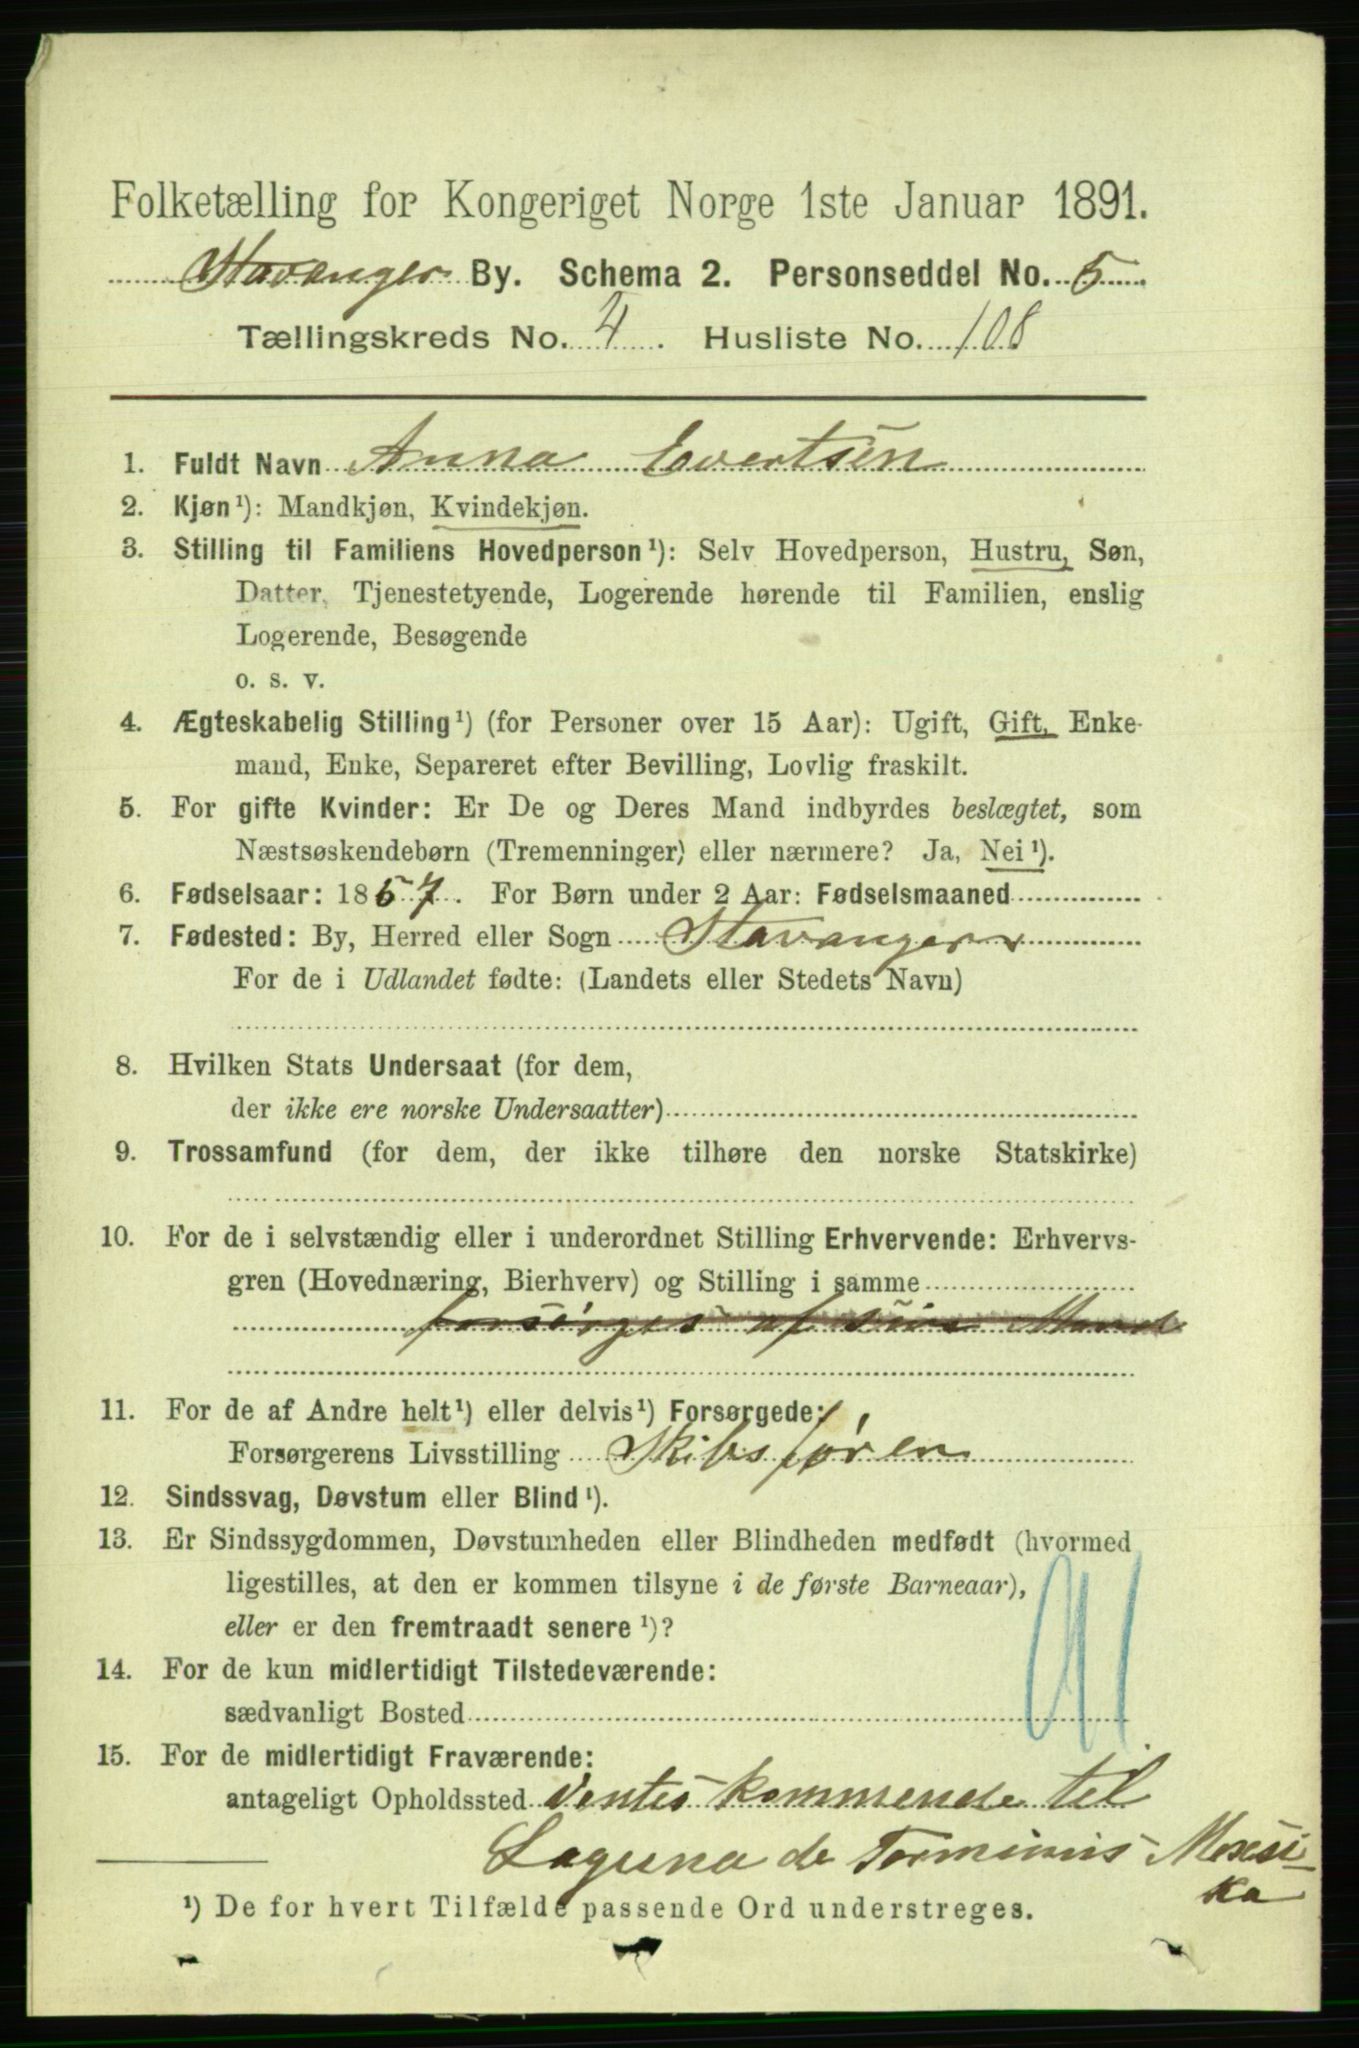 Folketælling for Kongeriget Norge 1ste Januar 1891.
Stavanger By. Schema 2. Personseddel No. 5
Tællingskreds No. 4. Husliste No. 108
1. Fuldt Navn Anna Evertsen
2. Kjøn¹): Mandkjøn, Kvindekjøn.
3. Stilling til Familiens Hovedperson¹): Selv Hovedperson, Hustru, Søn,
Datter, Tjenestetyende, Logerende hørende til Familien, enslig
Logerende, Besøgende
o. s. v.
4. Ægteskabelig Stilling¹) (for Personer over 15 Aar): Ugift, Gift, Enke-
mand, Enke, Separeret efter Bevilling, Lovlig fraskilt.
5. For gifte Kvinder: Er De og Deres Mand indbyrdes beslægtet, som
Næstsøskendebørn (Tremenninger) eller nærmere? Ja, Nei¹).
6. Fødselsaar: 1857. For Børn under 2 Aar: Fødselsmaaned
7. Fødested: By, Herred eller Sogn Stavanger
For de i Udlandet fødte: (Landets eller Stedets Navn)
8. Hvilken Stats Undersaat (for dem,
der ikke ere norske Undersaatter)
9. Trossamfund (for dem, der ikke tilhøre den norske Statskirke)
10. For de i selvstændig eller i underordnet Stilling Erhvervende: Erhvervs-
gren (Hovednæring, Bierhverv) og Stilling i samme
forsörges af sin Mand
11. For de af Andre helt¹) eller delvis¹) Forsørgede:
Forsørgerens Livsstilling Skibsfören
12. Sindssvag, Døvstum eller Blind¹).
13. Er Sindssygdommen, Døvstumheden eller Blindheden medfødt (hvormed
ligestilles, at den er kommen tilsyne i de første Barneaar),
eller er den fremtraadt senere¹)?
14. For de kun midlertidigt Tilstedeværende:
sædvanligt Bosted
15. For de midlertidigt Fraværende:
antageligt Opholdssted Ventes kommende til
Laguna de Terminis Mexsi-
ka
¹) De for hvert Tilfælde passende Ord understreges.